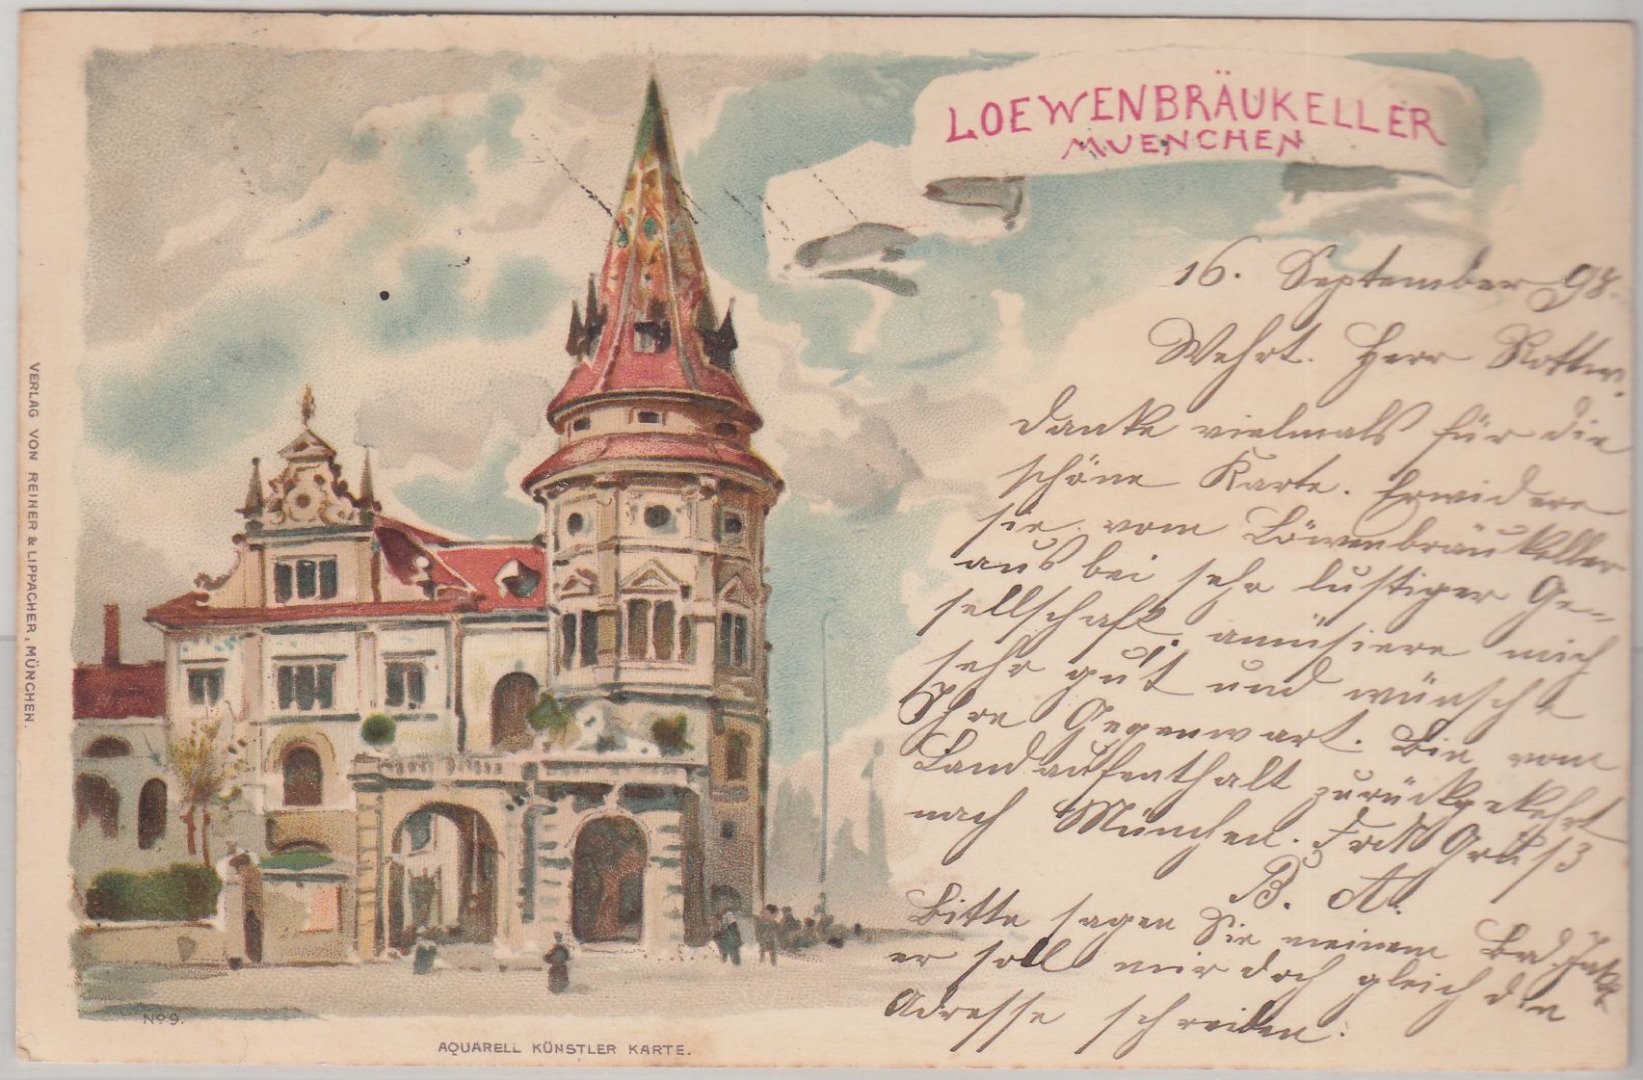 LOEWENBRÄUKELLER
MUENCHEN
16. September 98.
Wehrt. Herr
danke vielmals für die
schöne Karte. Erwidere
sie vom Löwenbräukeller
aus bei sehr lustiger Ge-
sellschaft, amüsiere mich
sehr gut und wünsche
Ihre Gegenwart. Bin vom
Landaufenthalt zurückgekehrt
nach München. Gruß
B. A.
Bitte sagen Sie meinem
er soll mir doch gleich die
Adresse schreiben.
VERLAG VON REINER & LIPPACHER, MÜNCHEN.
No 9.
AQUARELL KÜNSTLER KARTE.